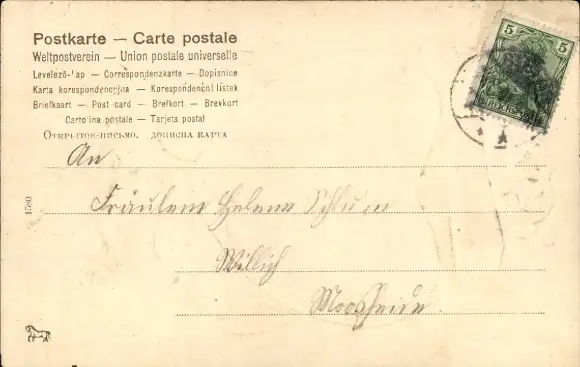 Postkarte — Carte postale
Weltpostverein — Union postale universelle
Levelező-lap — Correspondenzkarte — Dopisnice
Karta korespondencyjna — Korespondenční listek
Briefkaart — Post card — Brefkort — Brevkort
Cartolina postale — Tarjeta postal
Открытое-письмо. дописна карта
5 5
An
Fräulein Helene Schlum
Willich
Moosheide.
1580